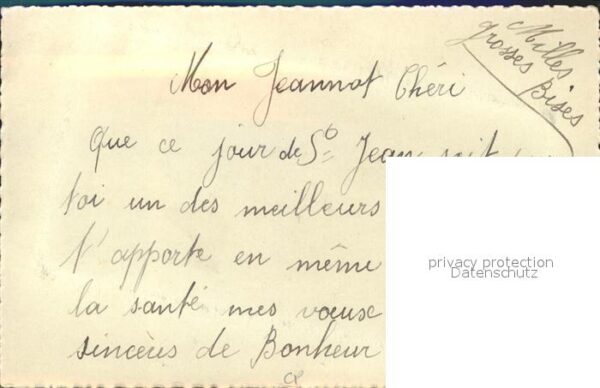 Milles
grosses Bises
Mon Jeannot Chéri
Que ce jour de St Jean soit
toi un des meilleurs
t'apporte en même
la santé mes vœux
sincères de Bonheur
privacy protection
Datenschutz